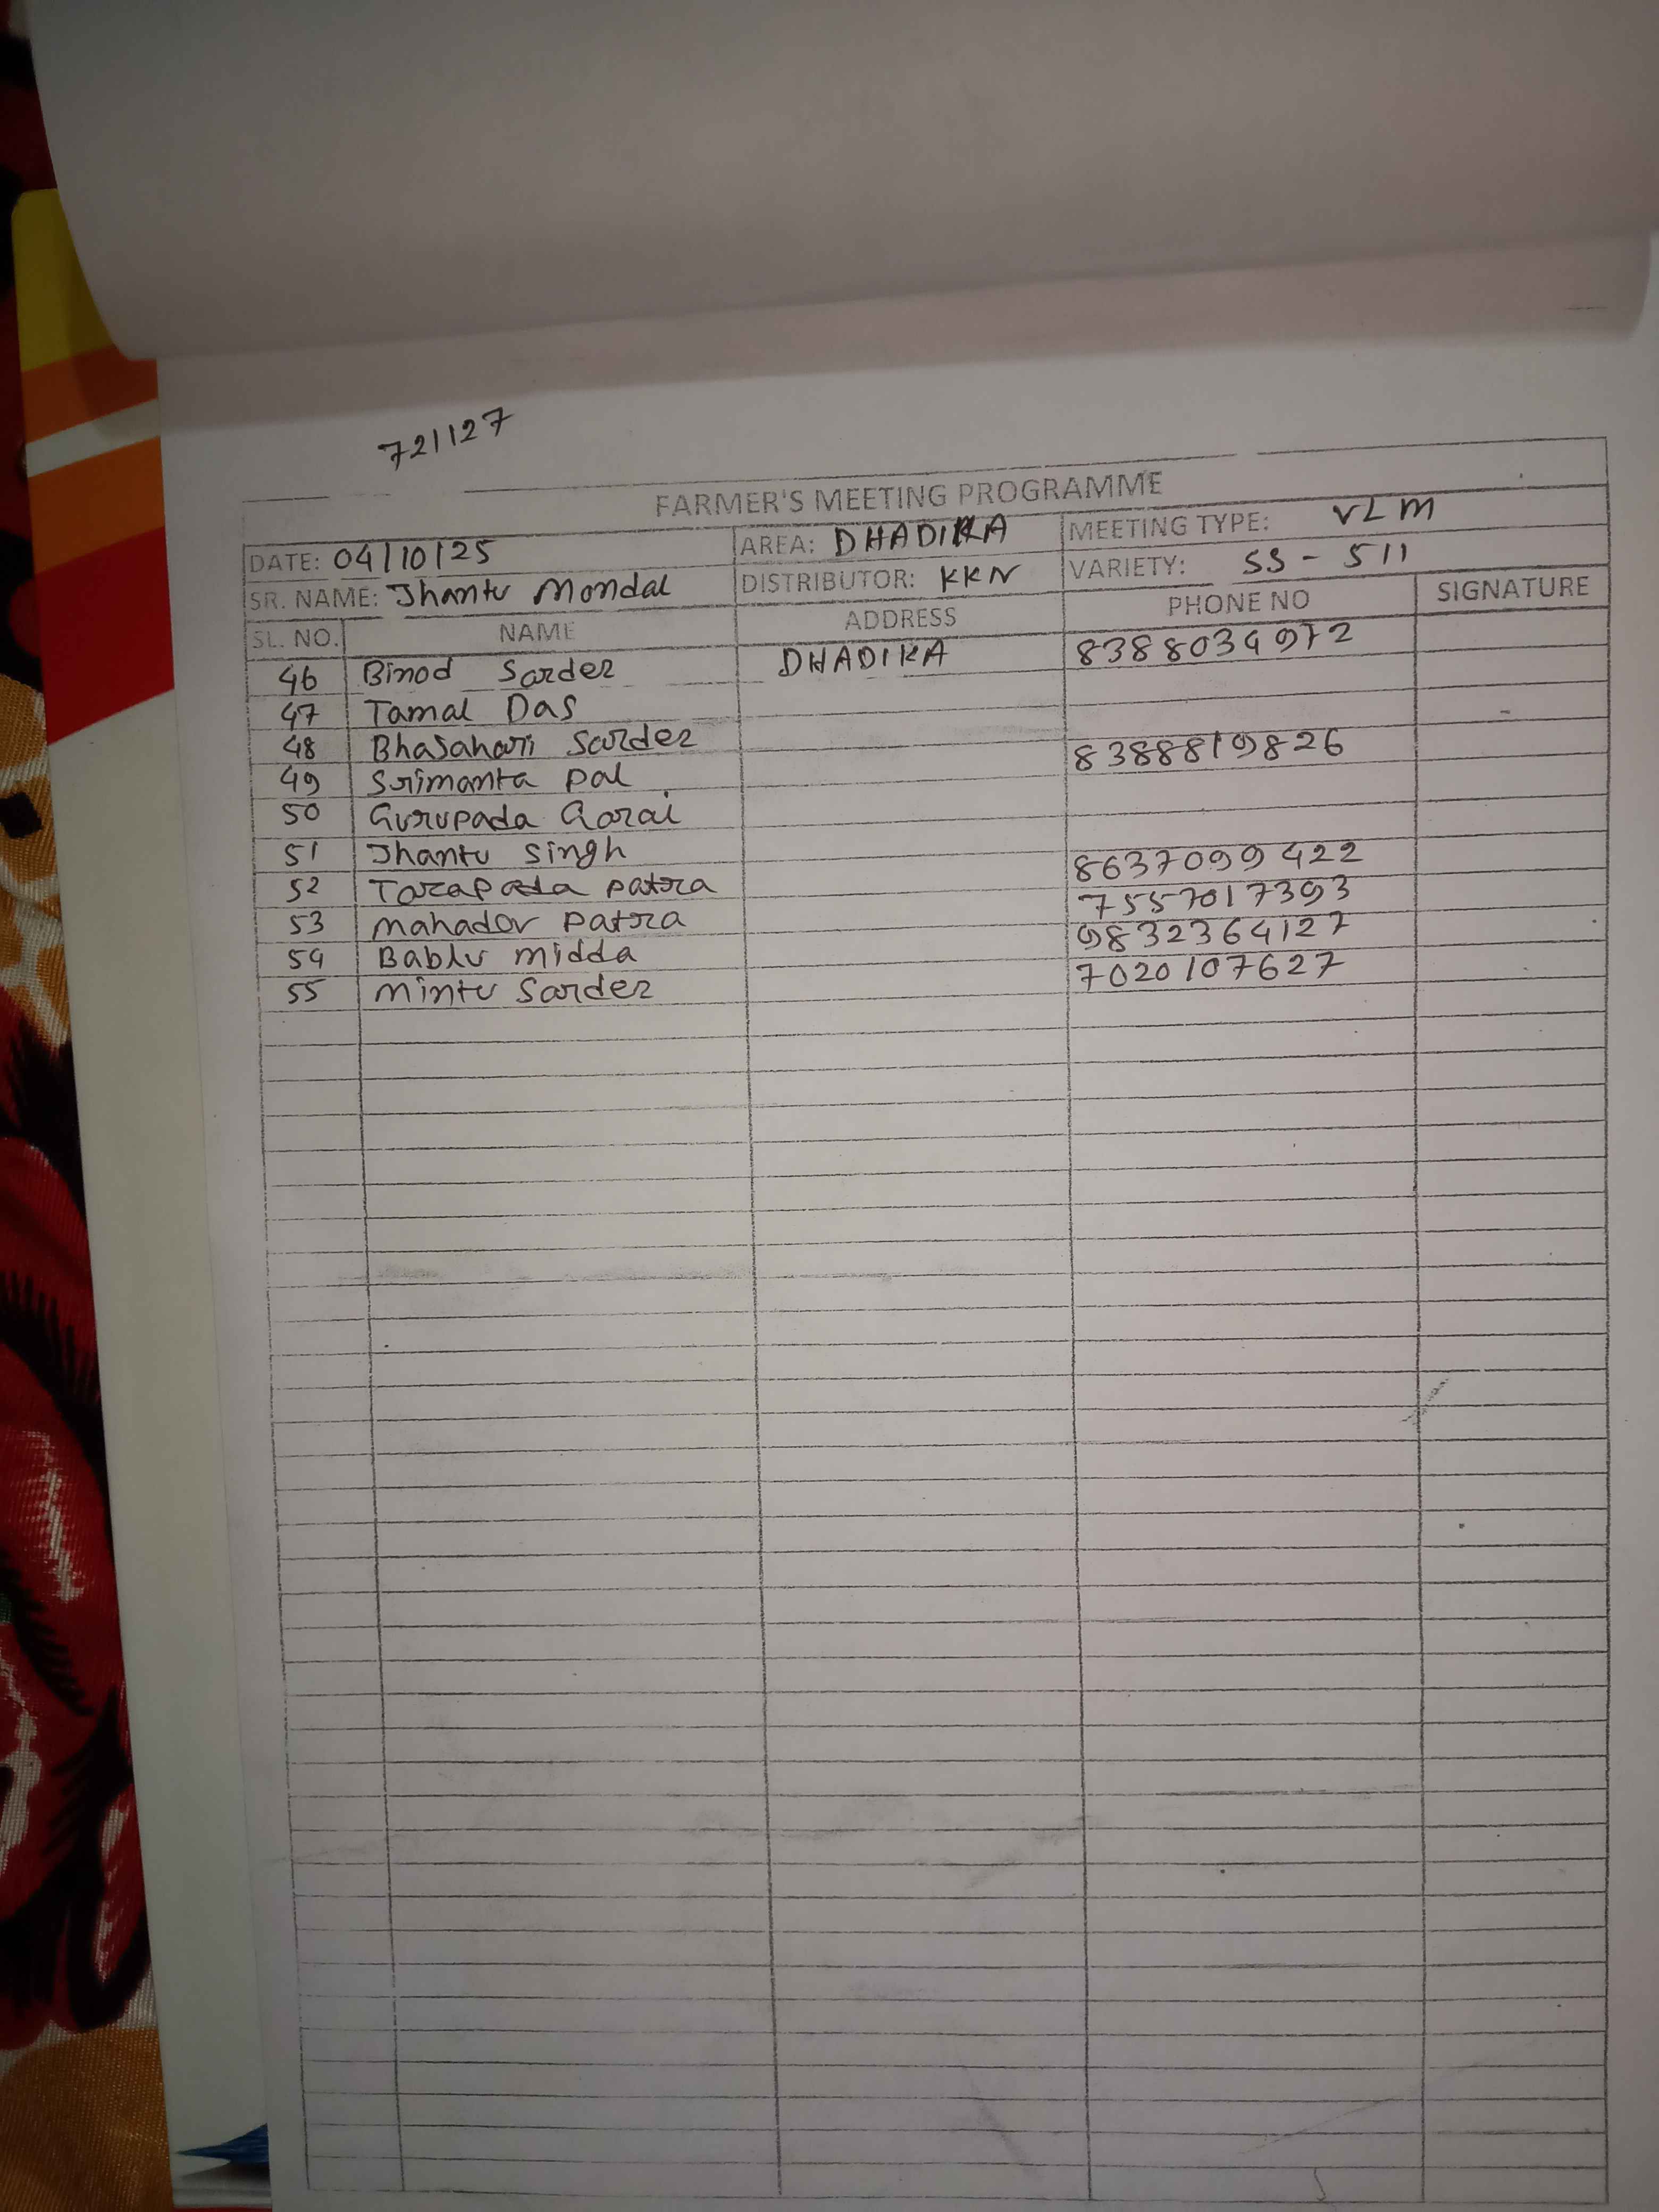 721127
FARMER'S MEETING PROGRAMME
DATE: 04/10/25 AREA: DHADIKA MEETING TYPE: VLM
SR. NAME: Jhantu Mondal DISTRIBUTOR: KKN VARIETY: SS - 511
SL. NO. NAME ADDRESS PHONE NO SIGNATURE
46 Binod Sarder DHADIKA 8388034972
47 Tamal Das
48 Bhajahari Sarder
49 Srimanta Pal 8388819826
50 Gurupada Garai
51 Jhantu Singh
52 Tarapada Patra 8637099422
53 Mahadov Patra 7557017393
54 Bablu Midda 9832364127
55 Mintu Sarder 7020107627